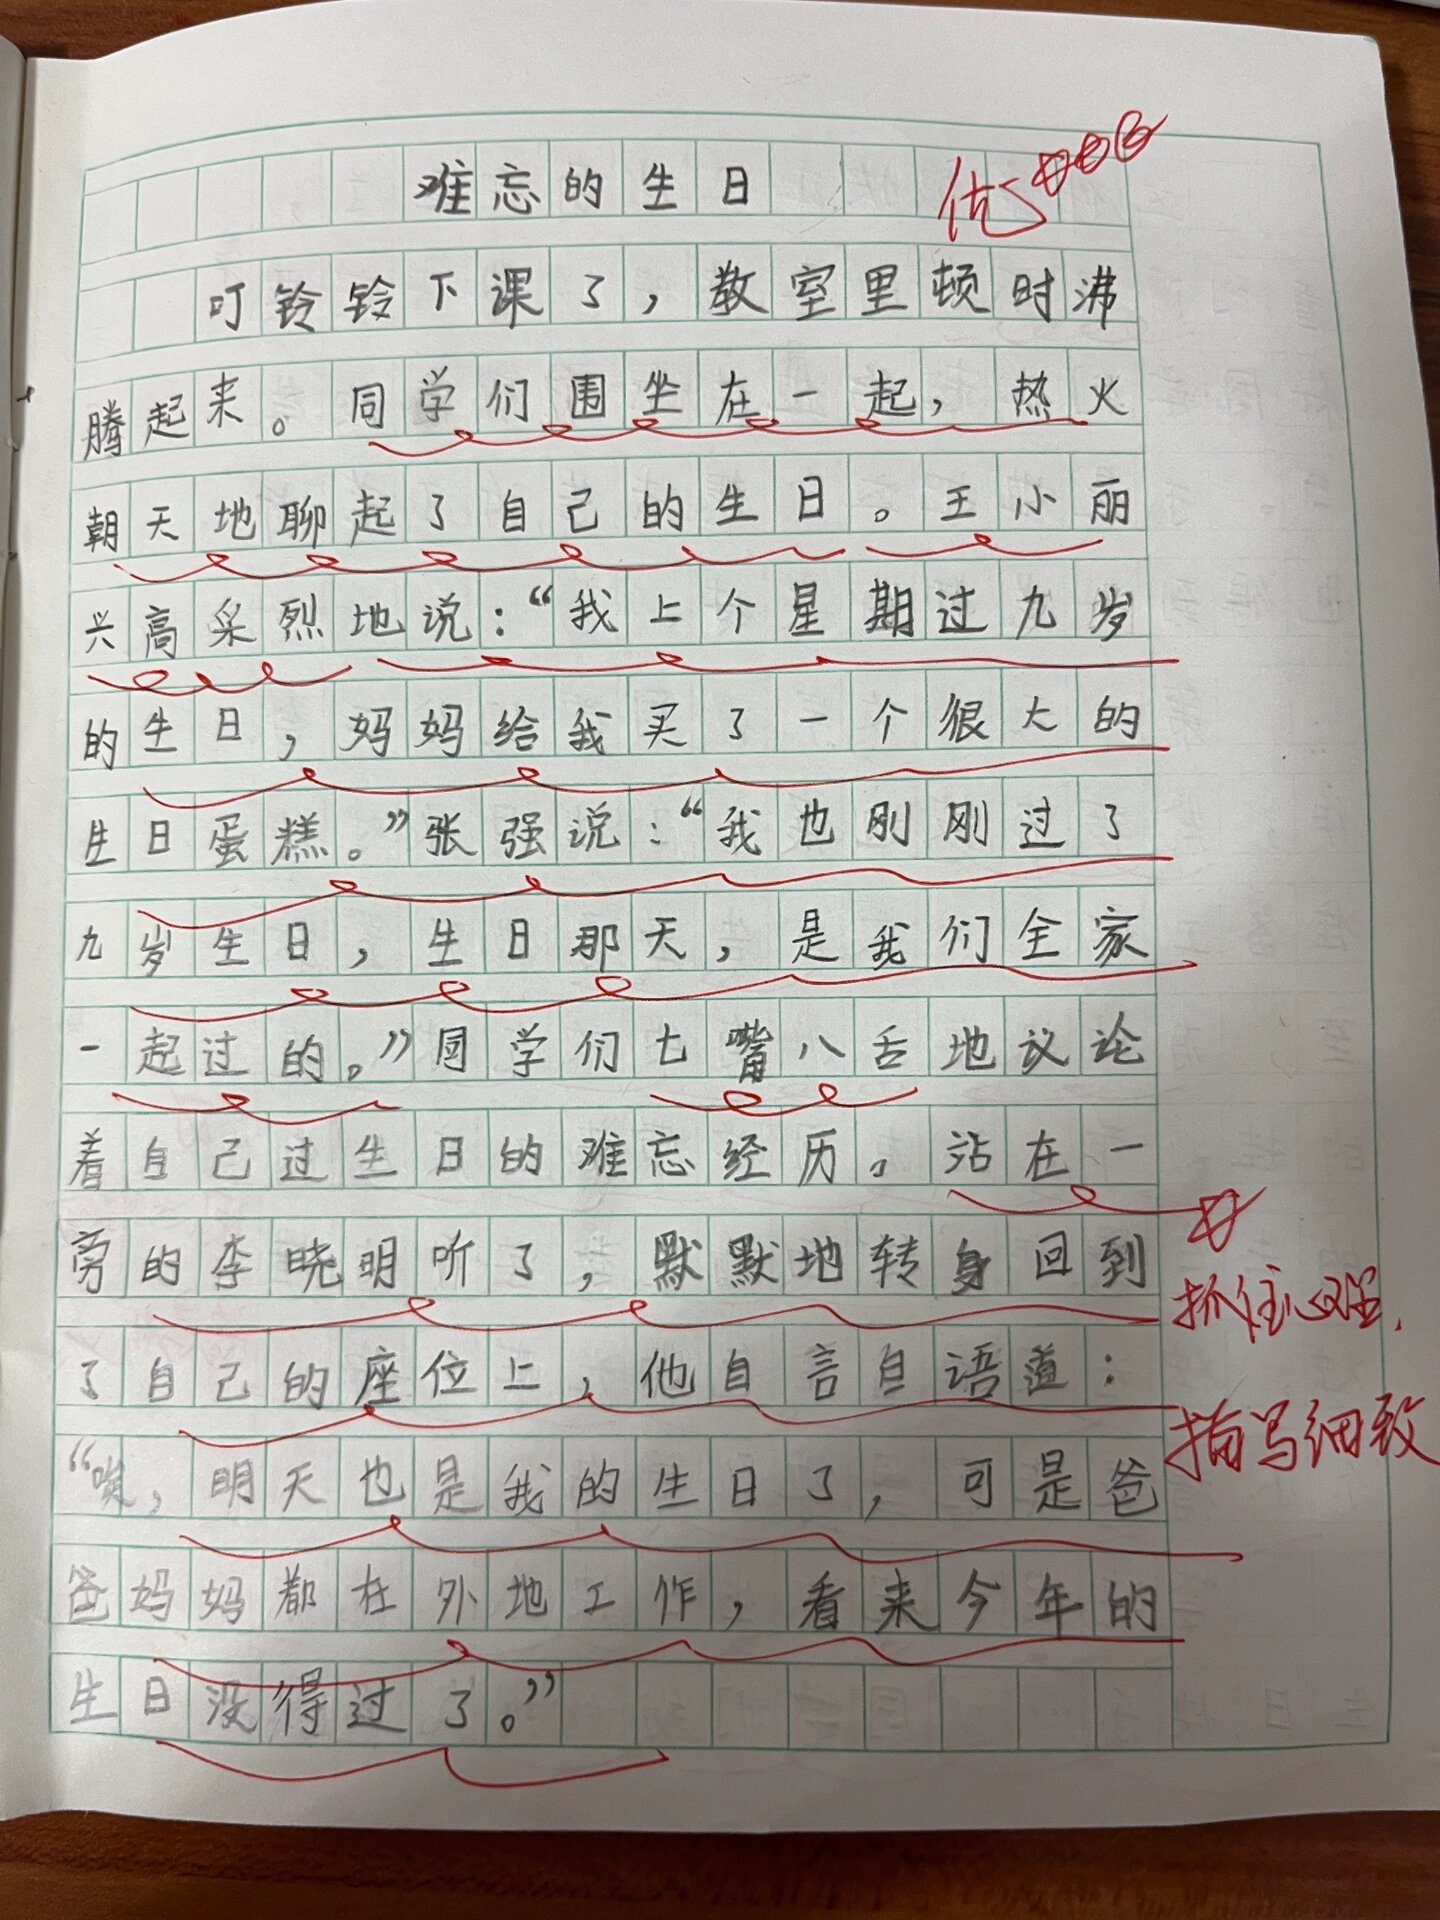 难忘的生日
优
叮铃铃下课了，教室里顿时沸
腾起来。同学们围坐在一起，热火
朝天地聊起了自己的生日。王小丽
兴高采烈地说：“我上个星期过九岁
的生日，妈妈给我买了一个很大的
生日蛋糕。”张强说：“我也刚刚过了
九岁生日，生日那天，是我们全家
一起过的。”同学们七嘴八舌地议论
着自己过生日的难忘经历。站在一
旁的李晓明听了，默默地转身回到
了自己的座位上，他自言自语道：
“唉，明天也是我的生日了，可是爸
爸妈妈都在外地工作，看来今年的
生日没得过了。”
抓住心理，
描写细致